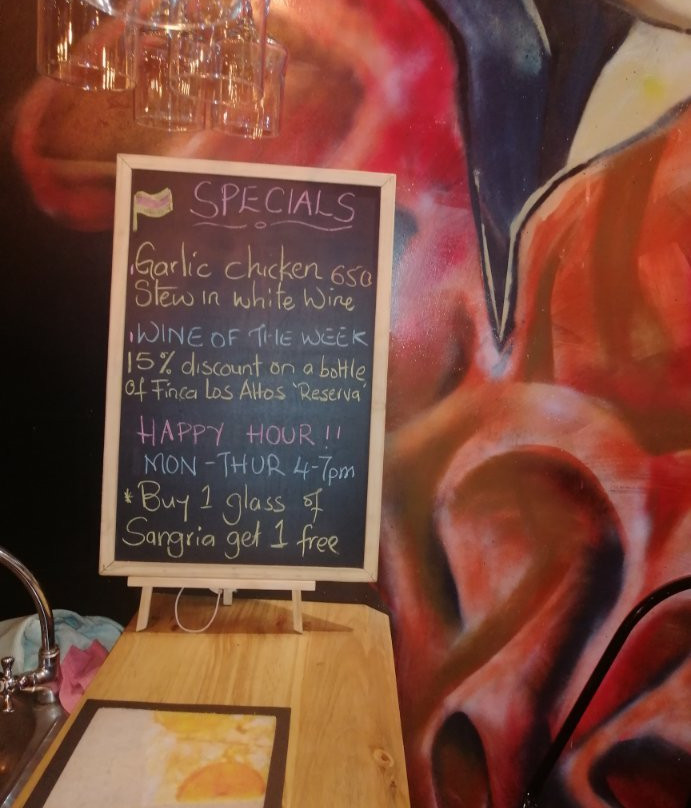 SPECIALS
Garlic chicken 650
Stew in white wine
WINE OF THE WEEK
15% discount on a bottle
of Finca Los Altos 'Reserva'
HAPPY HOUR!!
MON - THUR 4-7pm
* Buy 1 glass of
Sangria get 1 free